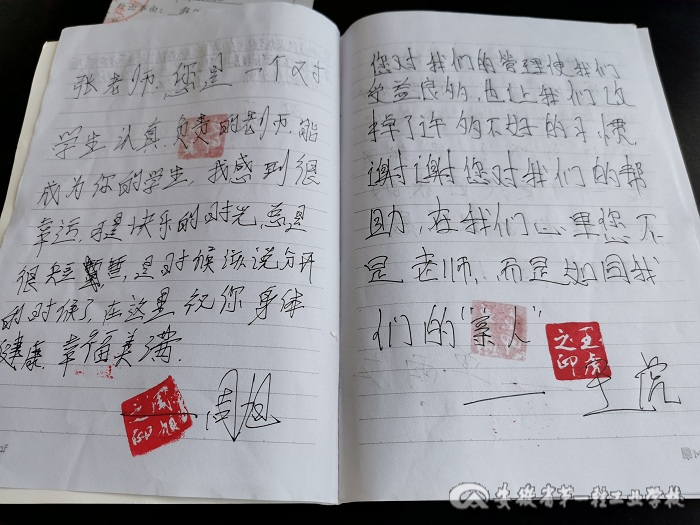 张老师,您是一个对
学生认真,负责的老师,能
成为你的学生,我感到很
幸运,可是快乐的时光,总是
很短暂,是时候该说分开
的时候了,在这里祝你身体
健康,幸福美满.
周旭
您对我们的管理使我们
受益良多,也让我们改
掉了许多不好的习惯
谢谢您对我们的帮
助,在我们心里您不
是老师,而是如同我
们的“亲人”
王虎
之印
— 王虎
安徽省第一轻工业学校